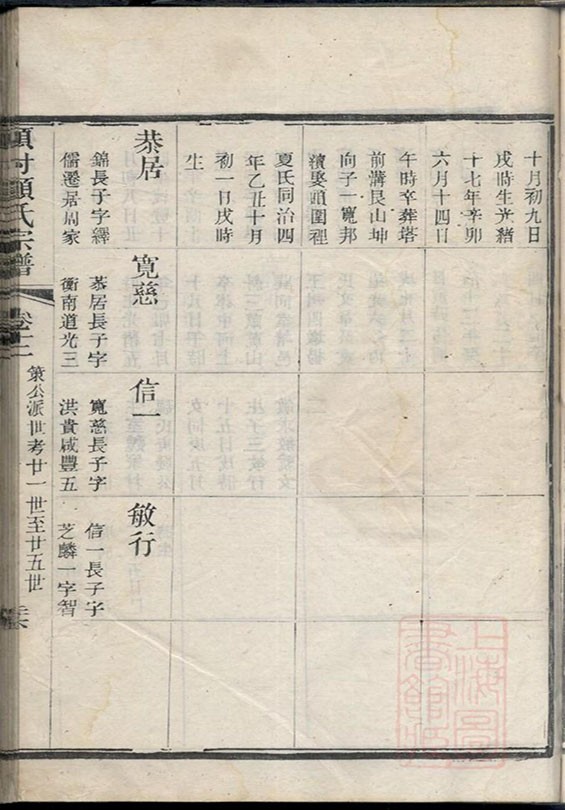 十月初九日
戌時生光緒
十七年辛卯
六月十四日
午時卒葬塔
前溝艮山坤
向子一寬邦
續娶頭圍裡
夏氏同治四
年乙丑十月
初一日戌時
生
恭居
錦長子字繹
儒遷居周家
寬慈
恭居長子字
衡南道光三
信一
寬慈長子字
洪貴咸豐五
敏行
信一長子字
芝麟一字智
顧氏宗譜
卷十二
策公派世考廿一世至廿五世
上海圖書館藏